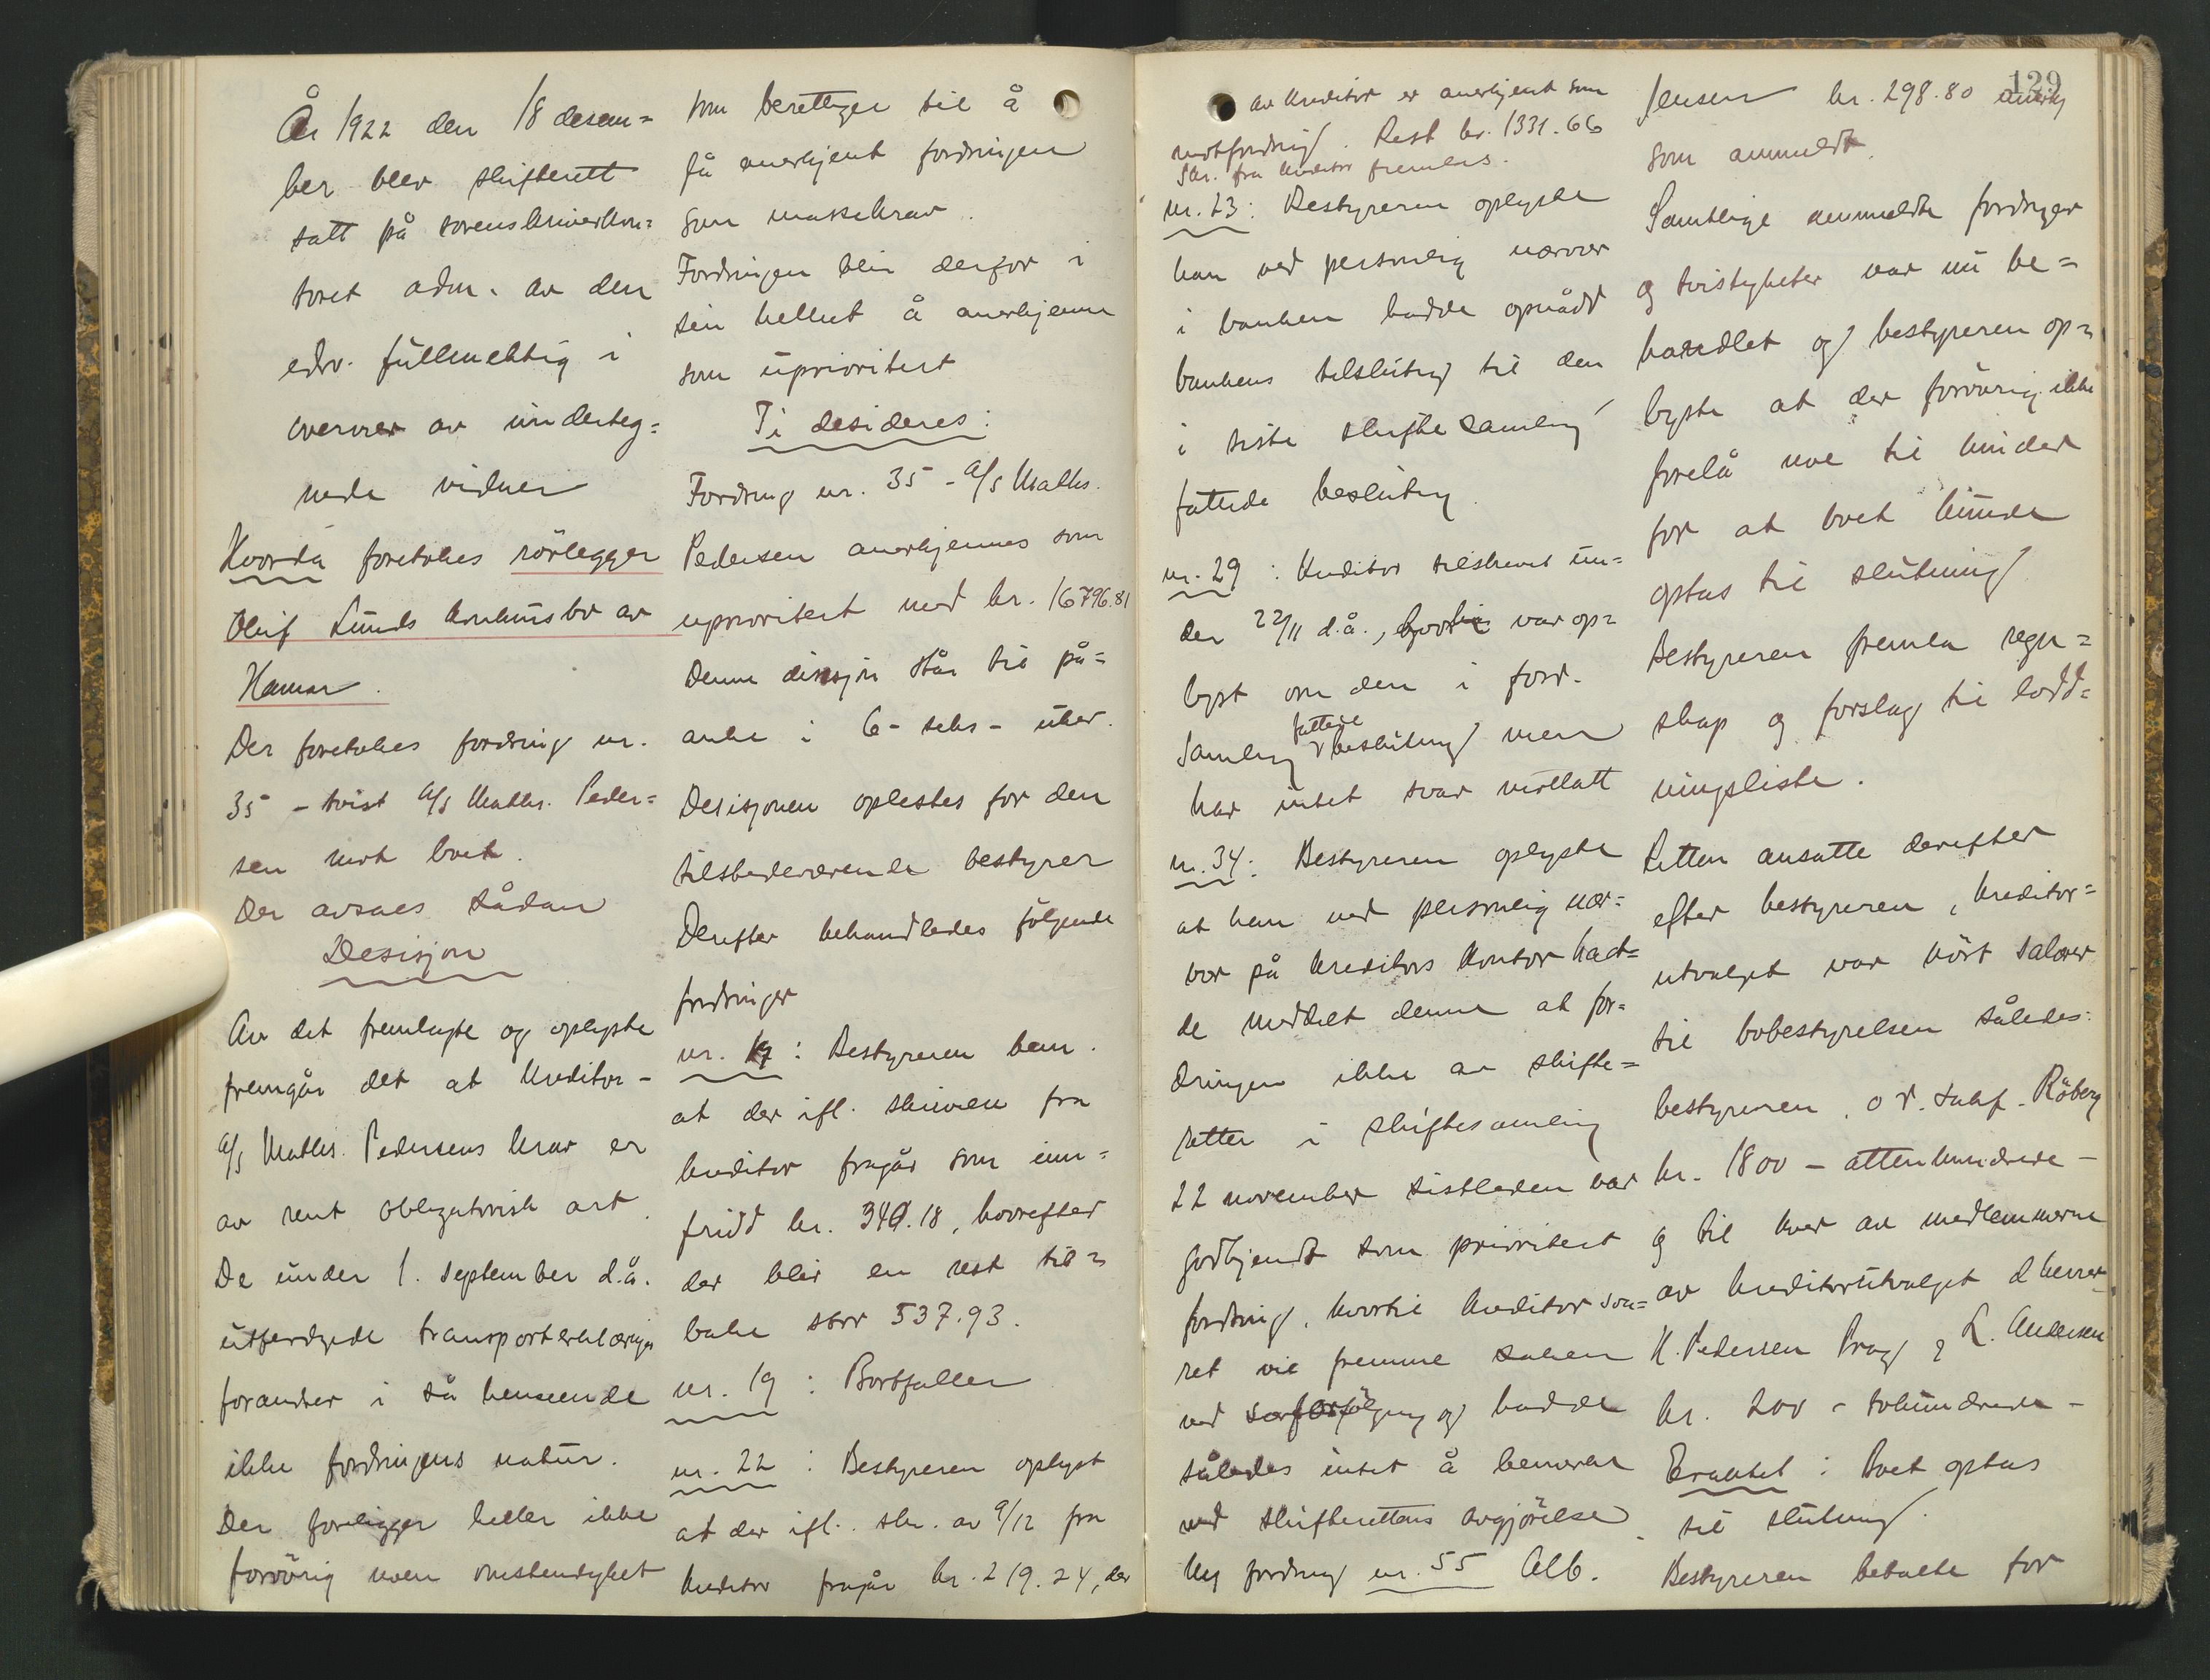 År 1922 den 18 desem=
ber blev skifterett
satt på sorenskriverkon=
toret adm. av den
edsv. fullmektig i
overvær av underteg=
nede vidner
Hvorda foretokes rörlegger
Oluf Lunds konkursbo av
Hamar.
Der foretokes fordring nr.
35 – tvist a/s Maths. Peder=
sen mot boet.
Der avsaes sådan
Desisjon
Av det fremlagte og oplyste
fremgår det at kreditor –
a/s Maths. Pedersens krav er
av rent obligatorisk art.
De under 1. september d.å.
utferdigede transporterklæringer
forandrer i så henseende
ikke fordringens natur.
Der foreligger heller ikke
forövrig noen omstendighet
som berettiger til å
få anerkjent fordringen
som massekrav.
Fordringen blir derfor i
sin helhet å anerkjenne
som uprioritert
Ti desideres:
Fordring nr. 35 – a/s Maths.
Pedersen anerkjennes som
uprioritert med kr. 16796.81
Denne desisjon står til på=
anke i 6 – seks – uker.
Desisjonen oplestes for den
tilstedeværende bestyrer
Derefter behandledes fölgende
fordringer
nr. : Bestyreren bem.
at der ifl. skrivelse fra
kreditor fragår som inn=
fridd kr. 340.18, hvorefter
der blir en rest til=
bake stor 537.93.
nr. 19 : Bortfaller
nr. 22 : Bestyreren oplyst
at der ifl. skr. av 9/12 fra
kreditor fragår kr. 219.24, der
129
av kreditor er anerkjent som
motfordring. Rest kr. 1331.66
Skr. fra kreditor fremlas.
nr. 23: Bestyreren oplyste
han ved personlig nærvær
i banken hadde opnådd
bankens tilslutning til den
i siste skiftesamling
fattede beslutning.
nr. 29 : Kreditor tilskrevet un=
der 22/11 d.å., var op=
lyst om den i ford.
samling fattede beslutning men
har intet svar mottatt
nr. 34: Bestyreren oplyste
at han ved personlig nær=
vær på kreditors kontor had=
de meddelt denne at for=
dringen ikke av skifte=
retten i skiftesamling
22 november sistleden var
godkjendt som prioritert
fordring, hvortil kreditor sva=
ret vil fremme saken
ved og hadde
således intet å bemerke
ved skifterettens avgjörelse.
Ny fordring nr. 55 Alb.
Jensen kr. 298.80 anerkj
som anmeldt.
Samtlige anmeldte fordringer
og tvistigheter var nu be=
handlet og bestyreren op=
lyste at der forövrig ikke
forelå noe til hinder
for at boet kunde
optas til slutning
Bestyreren fremla regn=
skap og forslag til lodd=
ningsliste.
Retten ansatte derefter
efter bestyreren, kreditor=
utvalget var hört salærer
til bobestyrelsen således:
bestyreren, o.r.sakf. Råberg
kr. 1800 – attenhundrede –
og til hver av medlemmerne
av kreditorutvalget d'herrer
H. Pedersen Brag og L. Andersen
kr. 200 – tohundrede –
Eraktet : Boet optas
til slutning.
Bestyreren betalte for